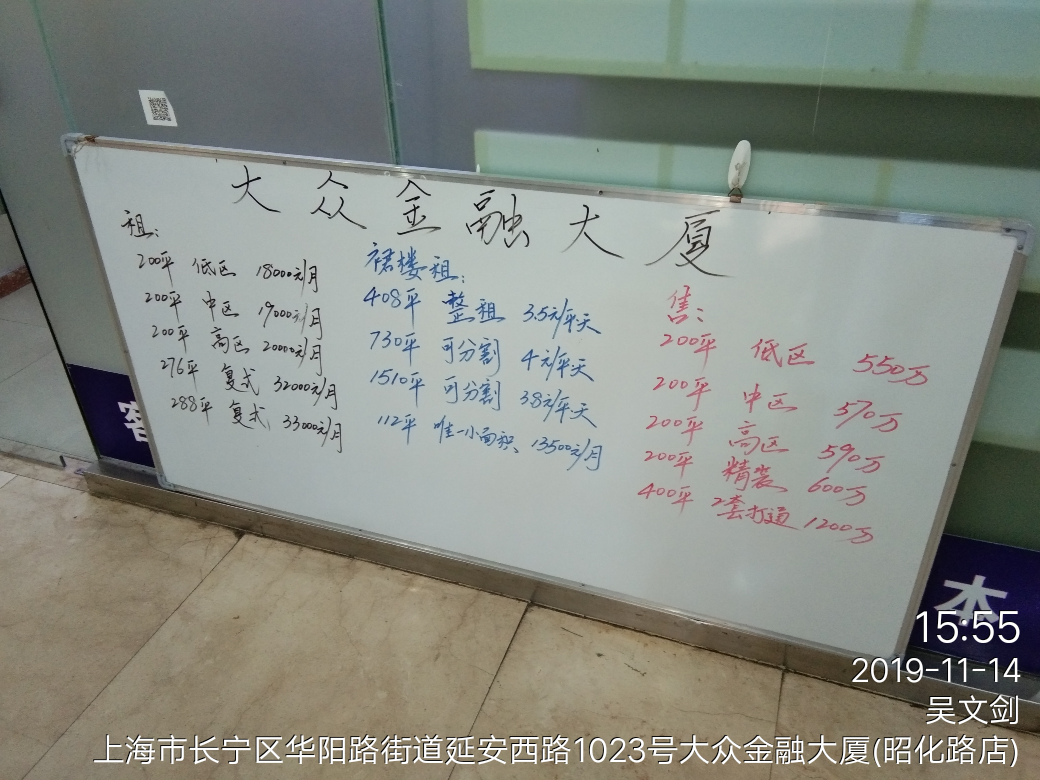 大众金融大厦
租:
200平 低区 18000元/月
200平 中区 19000元/月
200平 高区 20000元/月
276平 复式 32000元/月
288平 复式 33000元/月
裙楼租:
408平 整租 3.5元/平天
730平 可分割 4元/平天
1510平 可分割 3.8元/平天
112平 唯一小面积 13500元/月
售:
200平 低区 550万
200平 中区 570万
200平 高区 590万
200平 精装 600万
400平 2套打通 1200万
客
本
15:55
2019-11-14
吴文剑
上海市长宁区华阳路街道延安西路1023号大众金融大厦(昭化路店)